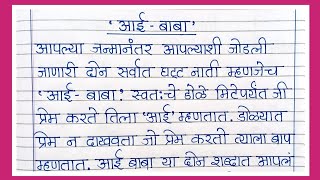 'आई-बाबा'
आपल्या जन्मानंतर आपल्याशी जोडली
जाणारी दोन सर्वात घट्ट नाती म्हणजेच
'आई-बाबा! स्वतःचे डोळे मिटेपर्यंत जी
प्रेम करते तिला 'आई' म्हणतात. डोळ्यात
प्रेम न दाखवता जो प्रेम करतो त्याला बाप
म्हणतात. आई बाबा या दोन शब्दात आपलं